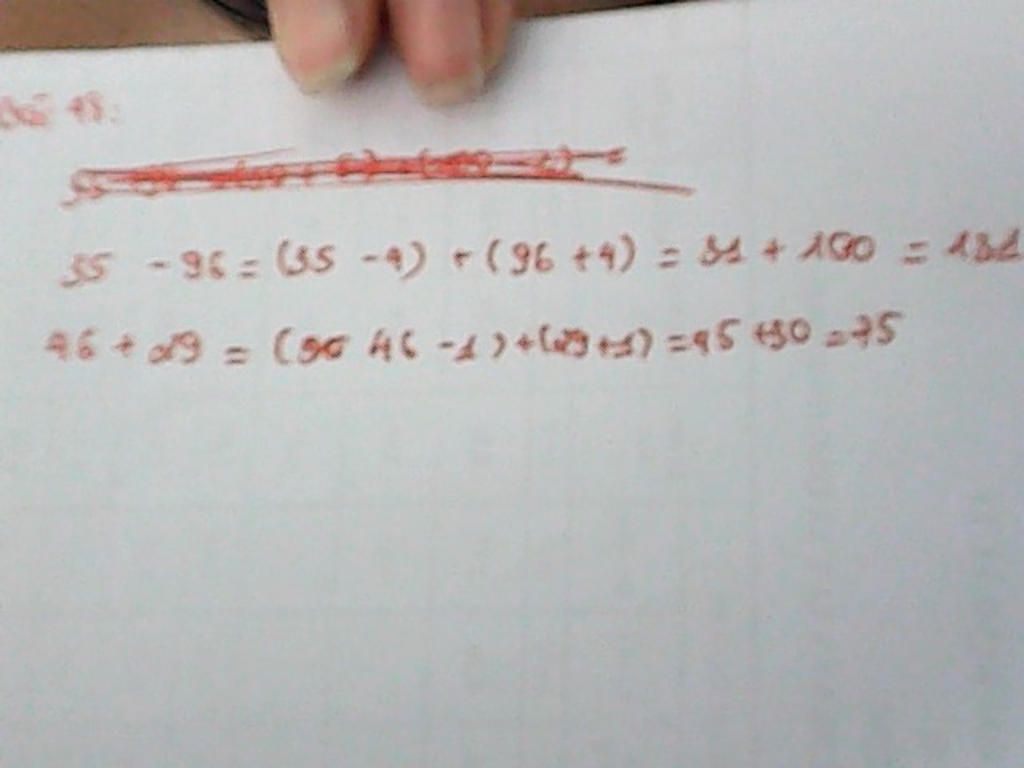 Bài 48:
35 - 96 = (35 - 4) + (96 + 4) = 31 + 100 = 131
46 + 29 = (46 - 1) + (29 + 1) = 45 + 30 = 75